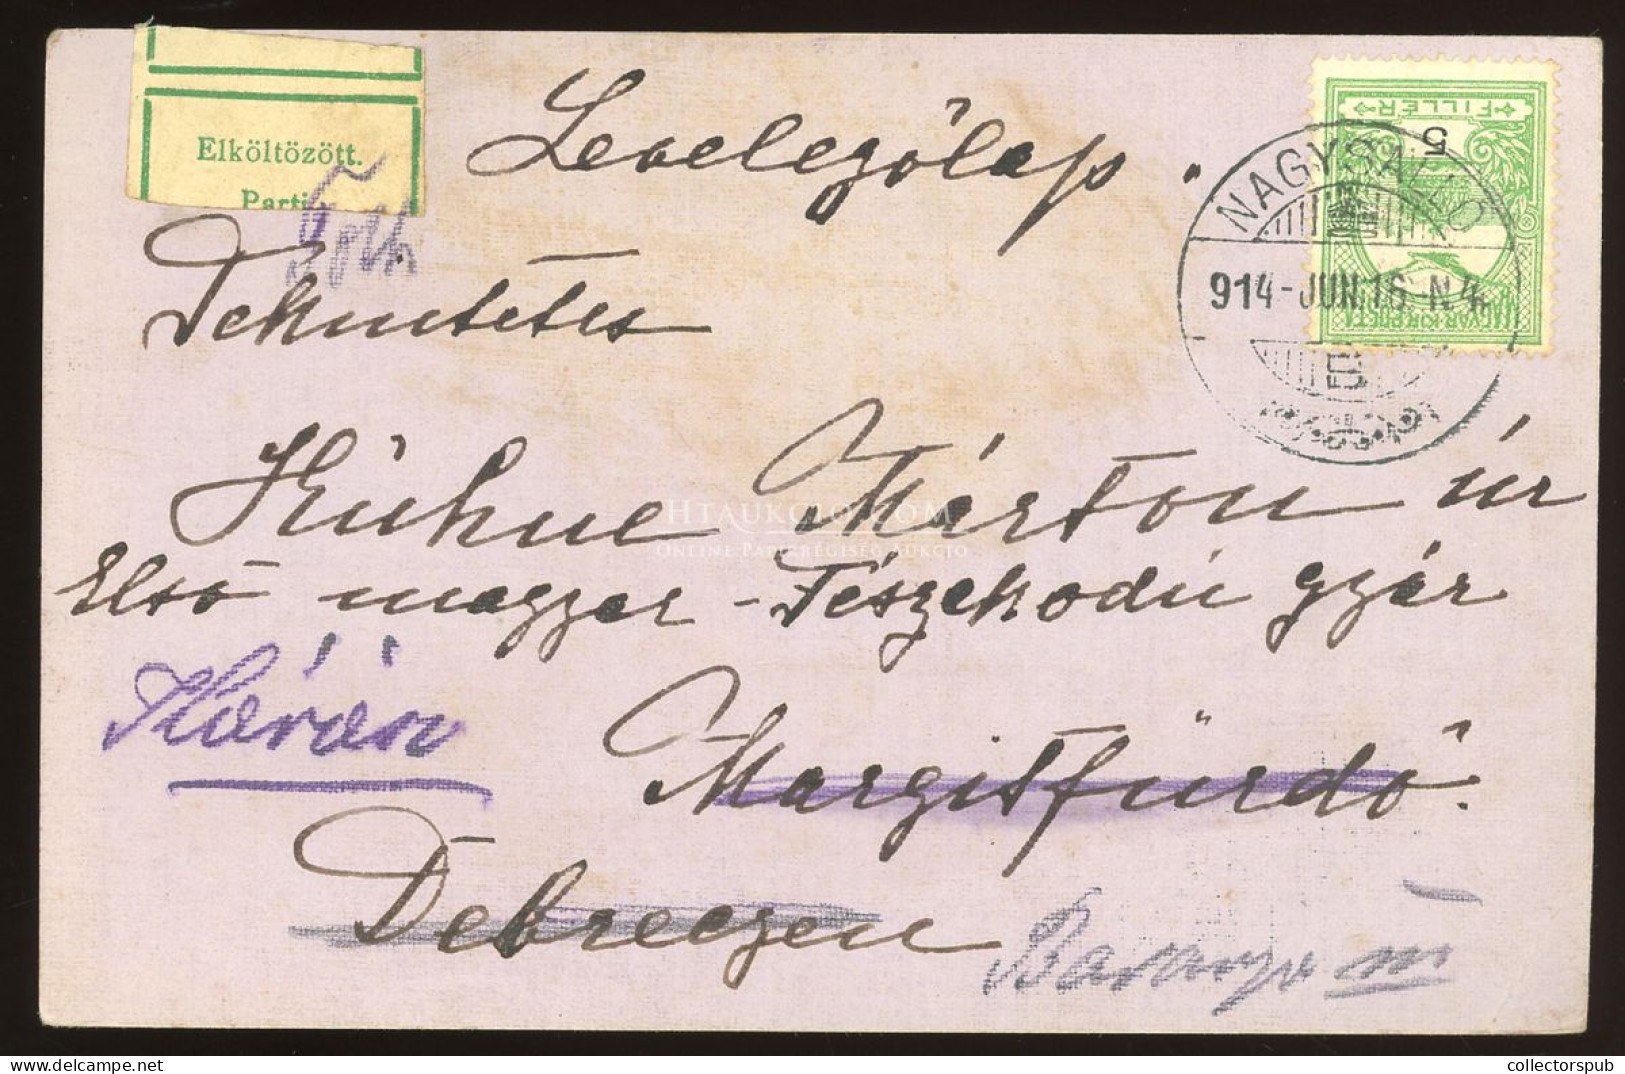 Elköltözött.
Parti
Tóth
Levelezőlap.
FILLÉR
5
MAGYAR KIR. POSTA
NAGYKÁLLÓ
914-JUN.16 N4
Tekintetes
Kühne Márton úr
Első magyar - Fészekodú gyár
Margitfürdő.
Debreczen
Baranya m
HTAUKCIO.COM
ONLINE PAPÍRRÉGISÉG AUKCIÓ
collectorspub